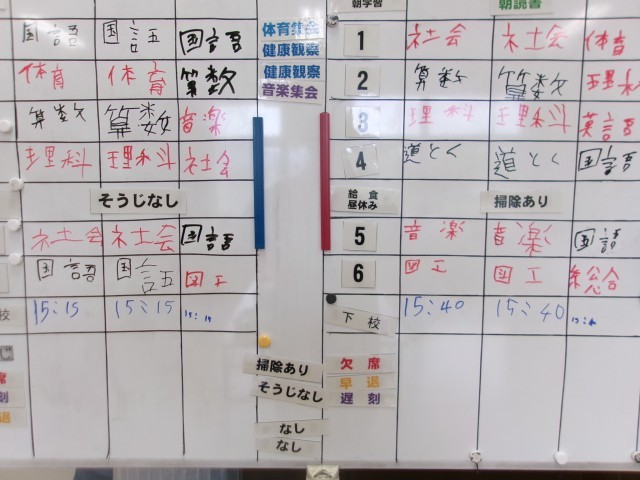 朝学習 朝読書
国語 国語 国語 体育集会 1 社会 社会 体育
健康観察
体育 体育 算数 健康観察 2 算数 算数 理科
音楽集会
算数 算数 音楽 3 理科 理科 英語
理科 理科 社会 4 道とく 道とく 国語
そうじなし 給食 昼休み 掃除あり
社会 社会 国語 5 音楽 音楽 国語
国語 国語 図工 6 図工 図工 総合
校 15:15 15:15 15:15 下校 15:40 15:40
掃除あり 欠席
席 そうじなし 早退
刻 遅刻
退 なし
なし